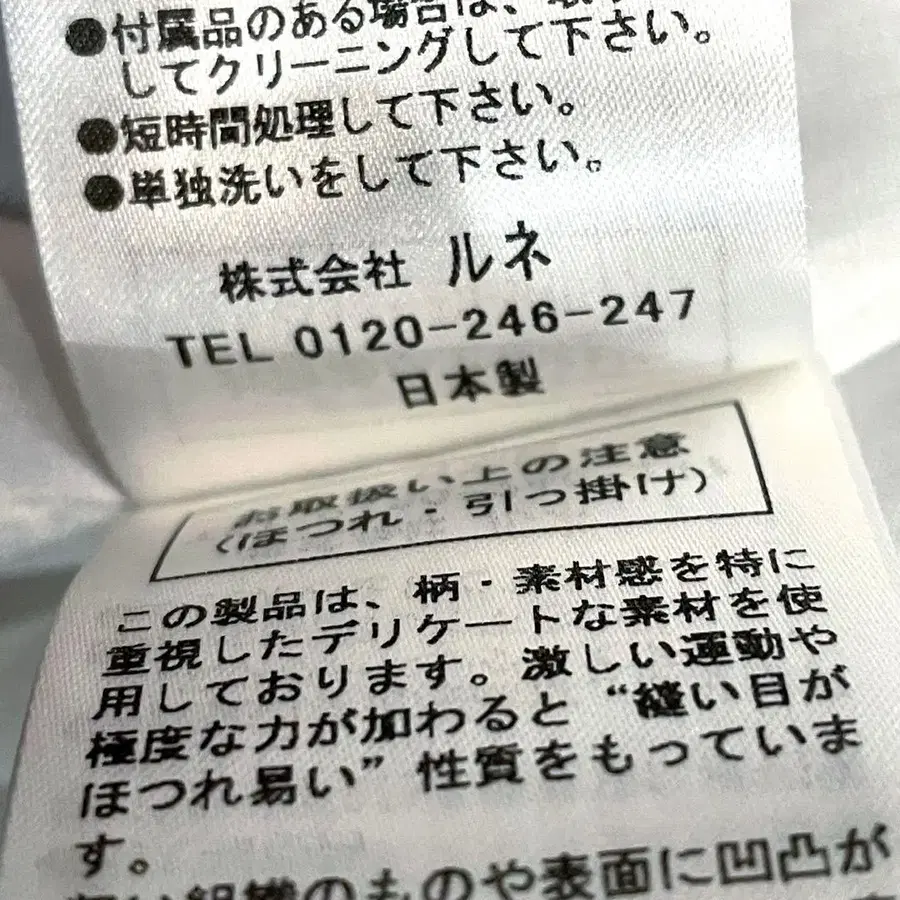 ●付属品のある場合は、
してクリーニングして下さい。
●短時間処理して下さい。
●単独洗いをして下さい。
株式会社 ルネ
TEL 0120-246-247
日本製
お取扱い上の注意
(ほつれ・引っ掛け)
この製品は、柄・素材感を特に
重視したデリケートな素材を使
用しております。激しい運動や
極度な力が加わると“縫い目が
ほつれ易い”性質をもっていま
す。
組織のものや表面に凹凸が